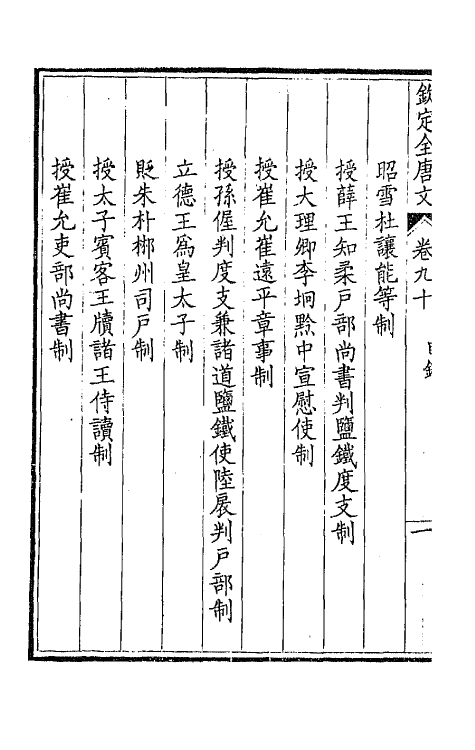 欽定全唐文 卷九十 目錄 一
昭雪杜讓能等制
授薛王知柔戸部尚書判鹽鐵度支制
授大理卿李坰黔中宣慰使制
授崔允崔遠平章事制
授孫偓判度支兼諸道鹽鐵使陸扆判戸部制
立德王爲皇太子制
貶朱朴郴州司戸制
授太子賓客王牘諸王侍讀制
授崔允吏部尚書制